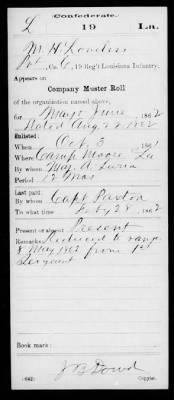 Confederate.
L 19 La.
M. H. Loveless
Pvt., Co. C, 19 Reg't Louisiana Infantry.
Appears on
Company Muster Roll
of the organization named above,
for May & June 1862
Dated Aug 22 1862
Enlisted:
When Oct. 3 1861
Where Camp Moore La
By whom Maj. A. Levin
Period 12 Mos
Last paid:
By whom Capt Paxton
To what time Feby 28 1862
Present or absent Present
Remarks: Reduced to ranks
8 May 1862 from 1st
Sergeant
Book mark:
J B Dowd
(642) Copyist.